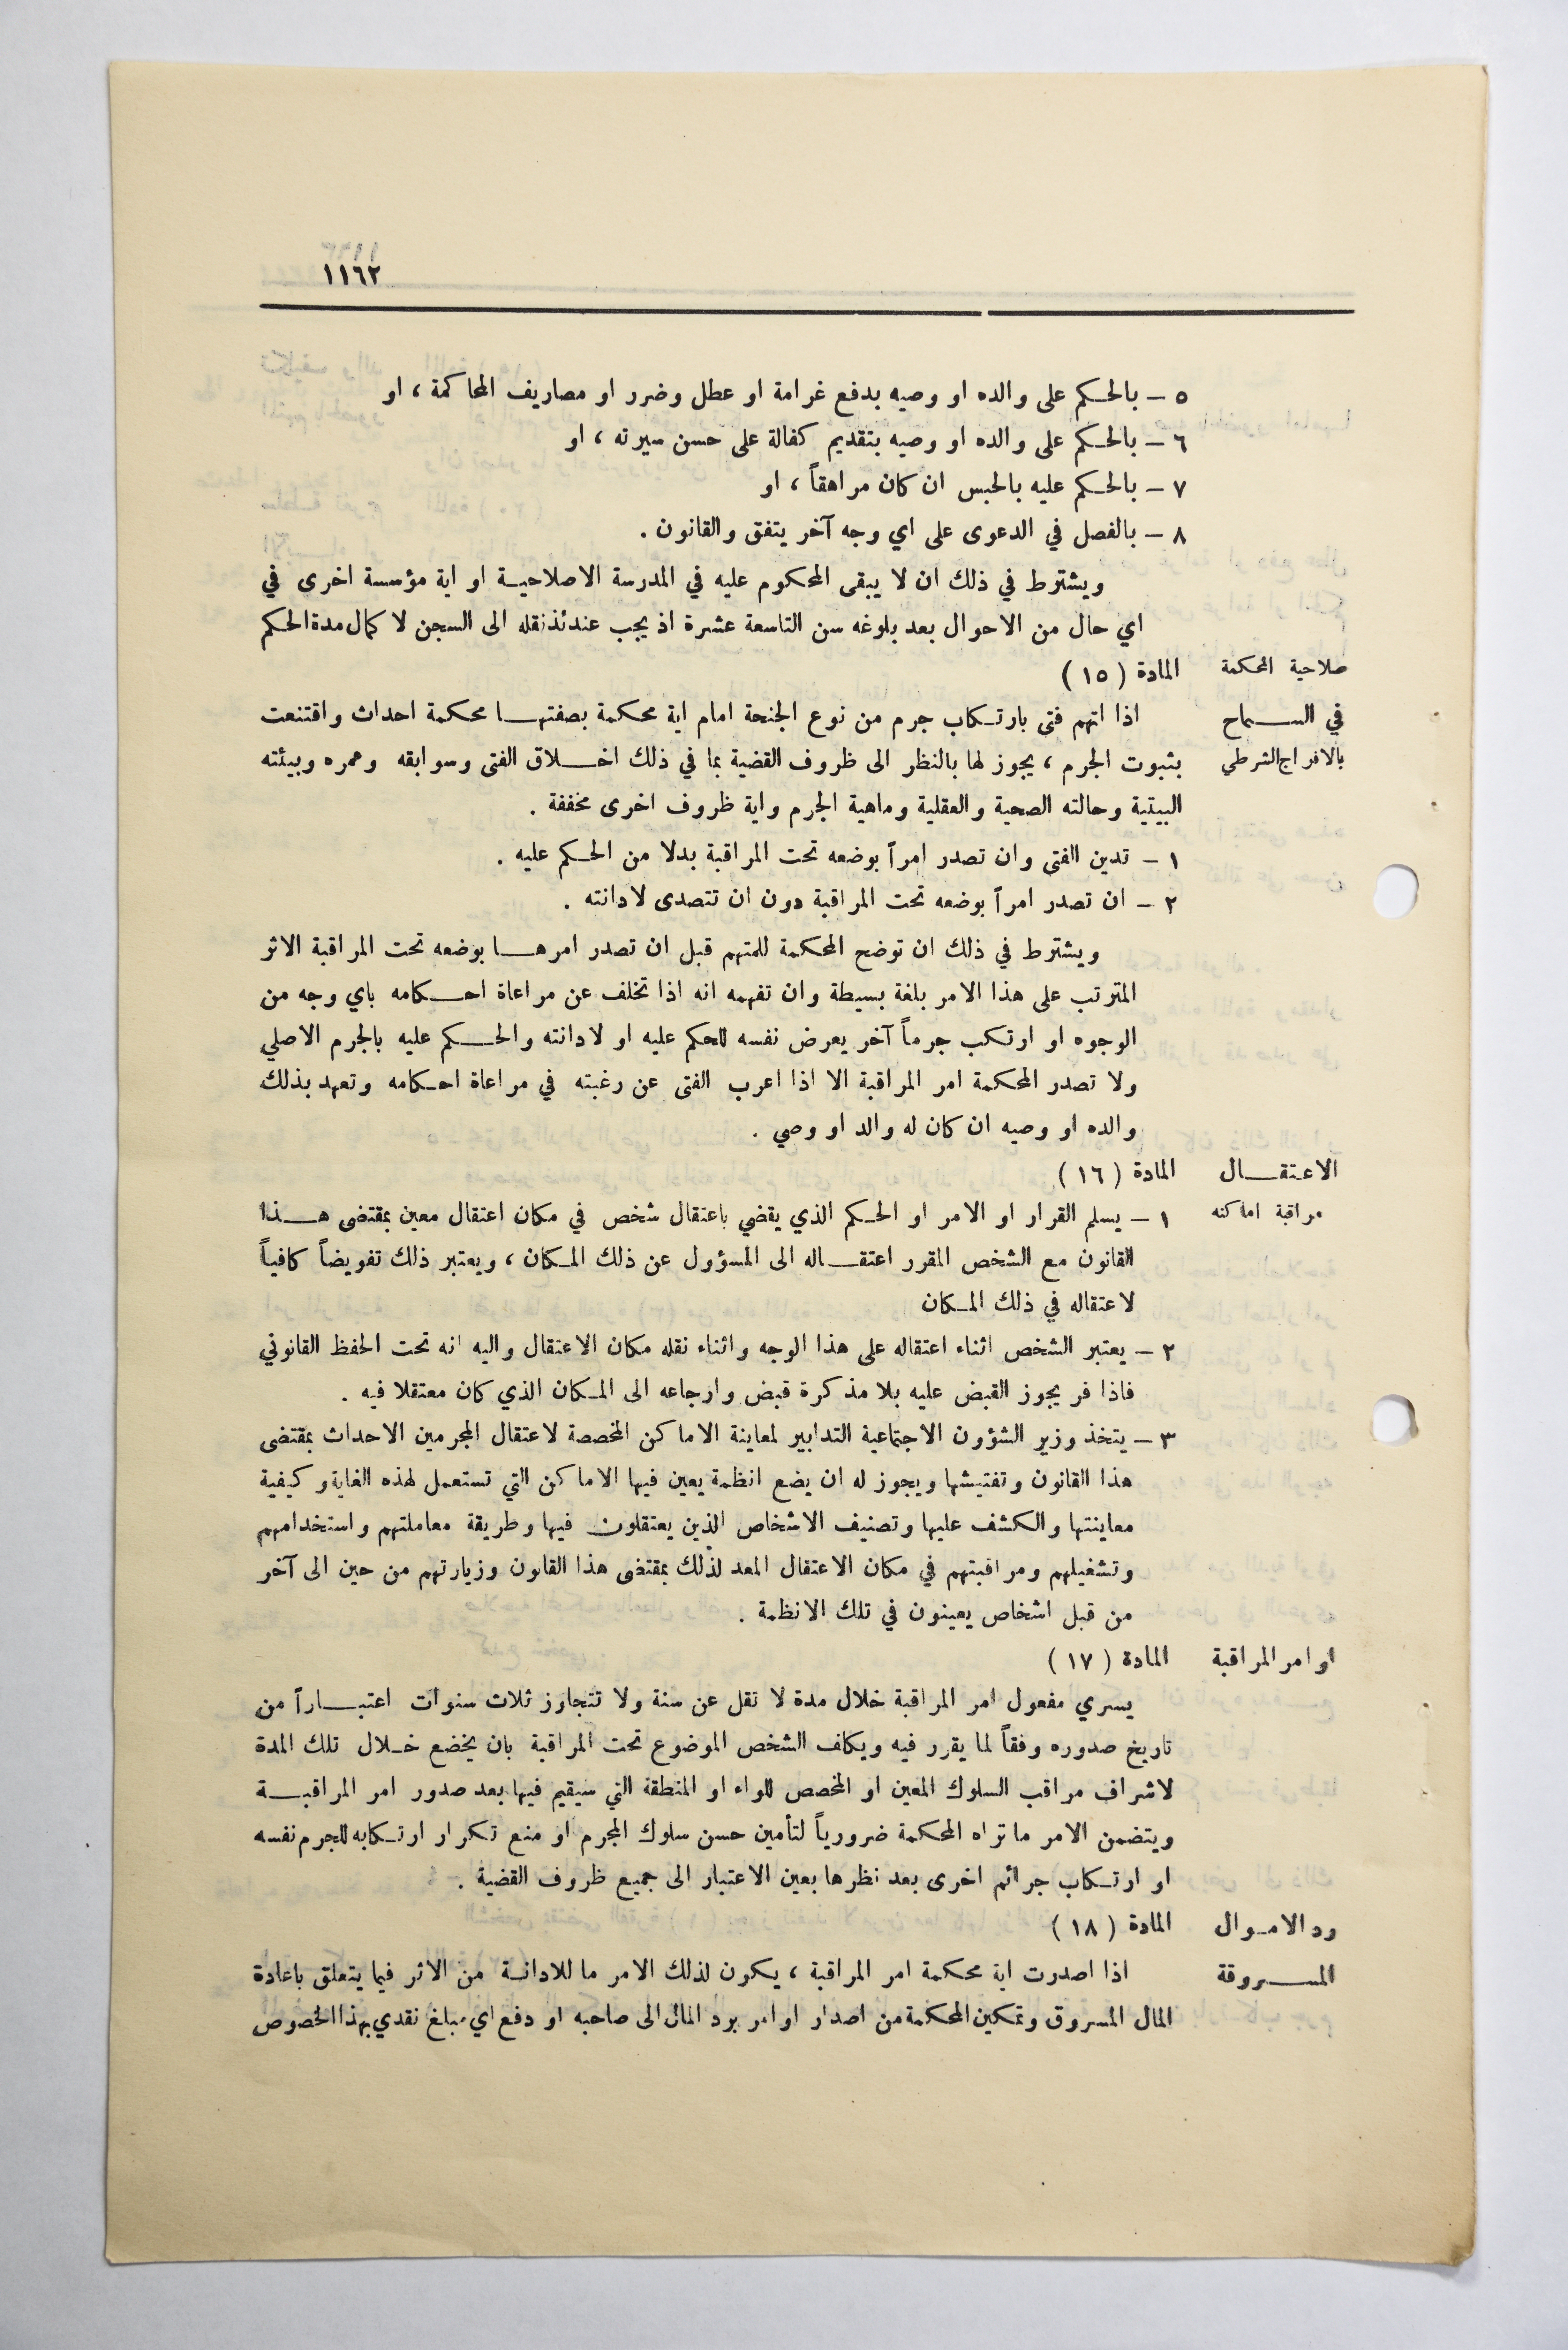 ١١٦٢
٥ – بالحكم على والده او وصيه بدفع غرامة او عطل وضرر او مصاريف المحاكمة ، او
٦ – بالحكم على والده او وصيه بتقديم كفالة على حسن سيرته ، او
٧ – بالحكم عليه بالحبس ان كان مراهقاً ، او
٨ – بالفصل في الدعوى على اي وجه آخر يتفق والقانون .
ويشترط في ذلك ان لا يبقى المحكوم عليه في المدرسة الاصلاحية او اية مؤسسة اخرى في
اي حال من الاحوال بعد بلوغه سن التاسعة عشرة اذ يجب عندئذ نقله الى السجن لا كمال مدة الحكم
صلاحية المحكمة
في السماح
بالافراج الشرطي
المادة ( ١٥ )
اذا اتهم فتى بارتكاب جرم من نوع الجنحة امام اية محكمة بصفتها محكمة احداث واقتنعت
بثبوت الجرم ، يجوز لها بالنظر الى ظروف القضية بما في ذلك اخلاق الفتى وسوابقه وعمره وبيئته
البيتية وحالته الصحية والعقلية وماهية الجرم واية ظروف اخرى مخففة .
١ – تدين الفتى وان تصدر امراً بوضعه تحت المراقبة بدلا من الحكم عليه .
٢ – ان تصدر امراً بوضعه تحت المراقبة دون ان تتصدى لادانته .
ويشترط في ذلك ان توضح المحكمة للمتهم قبل ان تصدر امرها بوضعه تحت المراقبة الاثر
المترتب على هذا الامر بلغة بسيطة وان تفهمه انه اذا تخلف عن مراعاة احكامه باي وجه من
الوجوه او ارتكب جرماً آخر يعرض نفسه للحكم عليه او لادانته والحكم عليه بالجرم الاصلي
ولا تصدر المحكمة امر المراقبة الا اذا اعرب الفتى عن رغبته في مراعاة احكامه وتعهد بذلك
والده او وصيه ان كان له والد او وصي .
الاعتقال
مراقبة اماكنه
المادة ( ١٦ )
١ – يسلم القرار او الامر او الحكم الذي يقضي باعتقال شخص في مكان اعتقال معين بمقتضى هذا
القانون مع الشخص المقرر اعتقاله الى المسؤول عن ذلك المكان ، ويعتبر ذلك تفويضاً كافياً
لاعتقاله في ذلك المكان
٢ – يعتبر الشخص اثناء اعتقاله على هذا الوجه واثناء نقله مكان الاعتقال واليه انه تحت الحفظ القانوني
فاذا فر يجوز القبض عليه بلا مذكرة قبض وارجاعه الى المكان الذي كان معتقلا فيه .
٣ – يتخذ وزير الشؤون الاجتماعية التدابير لمعاينة الاماكن المخصصة لاعتقال المجرمين الاحداث بمقتضى
هذا القانون وتفتيشها ويجوز له ان يضع انظمة يعين فيها الاماكن التي تستعمل لهذه الغاية وكيفية
معاينتها والكشف عليها وتصنيف الاشخاص الذين يعتقلون فيها وطريقة معاملتهم واستخدامهم
وتشغيلهم ومراقبتهم في مكان الاعتقال المعد لذلك بمقتضى هذا القانون وزيارتهم من حين الى آخر
من قبل اشخاص يعينون في تلك الانظمة .
اوامر المراقبة
المادة ( ١٧ )
يسري مفعول امر المراقبة خلال مدة لا تقل عن سنة ولا تتجاوز ثلاث سنوات اعتباراً من
تاريخ صدوره وفقاً لما يقرر فيه ويكلف الشخص الموضوع تحت المراقبة بان يخضع خلال تلك المدة
لاشراف مراقب السلوك المعين او المخصص للواء او المنطقة التي سيقيم فيها بعد صدور امر المراقبة
ويتضمن الامر ما تراه المحكمة ضرورياً لتأمين حسن سلوك المجرم او منع تكرار ارتكابه للجرم نفسه
او ارتكاب جرائم اخرى بعد نظرها بعين الاعتبار الى جميع ظروف القضية .
رد الاموال
المسروقة
المادة ( ١٨ )
اذا اصدرت اية محكمة امر المراقبة ، يكون لذلك الامر ما للادانة من الاثر فيما يتعلق باعادة
المال المسروق وتمكين المحكمة من اصدار اوامر برد المال الى صاحبه او دفع اي مبلغ نقدي بهذا الخصوص